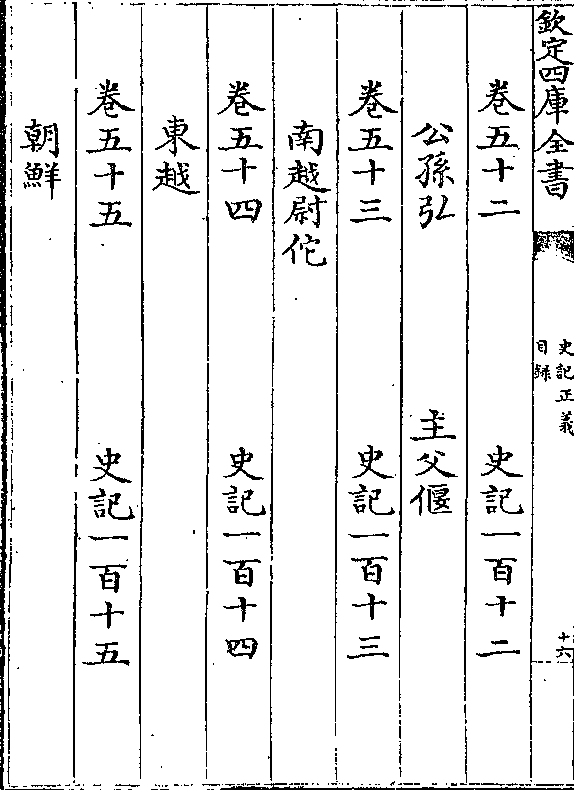 欽定四庫全書
史記正義
目録
十六
卷五十二 史記一百十二
公孫弘 主父偃
卷五十三 史記一百十三
南越尉佗
卷五十四 史記一百十四
東越
卷五十五 史記一百十五
朝鮮